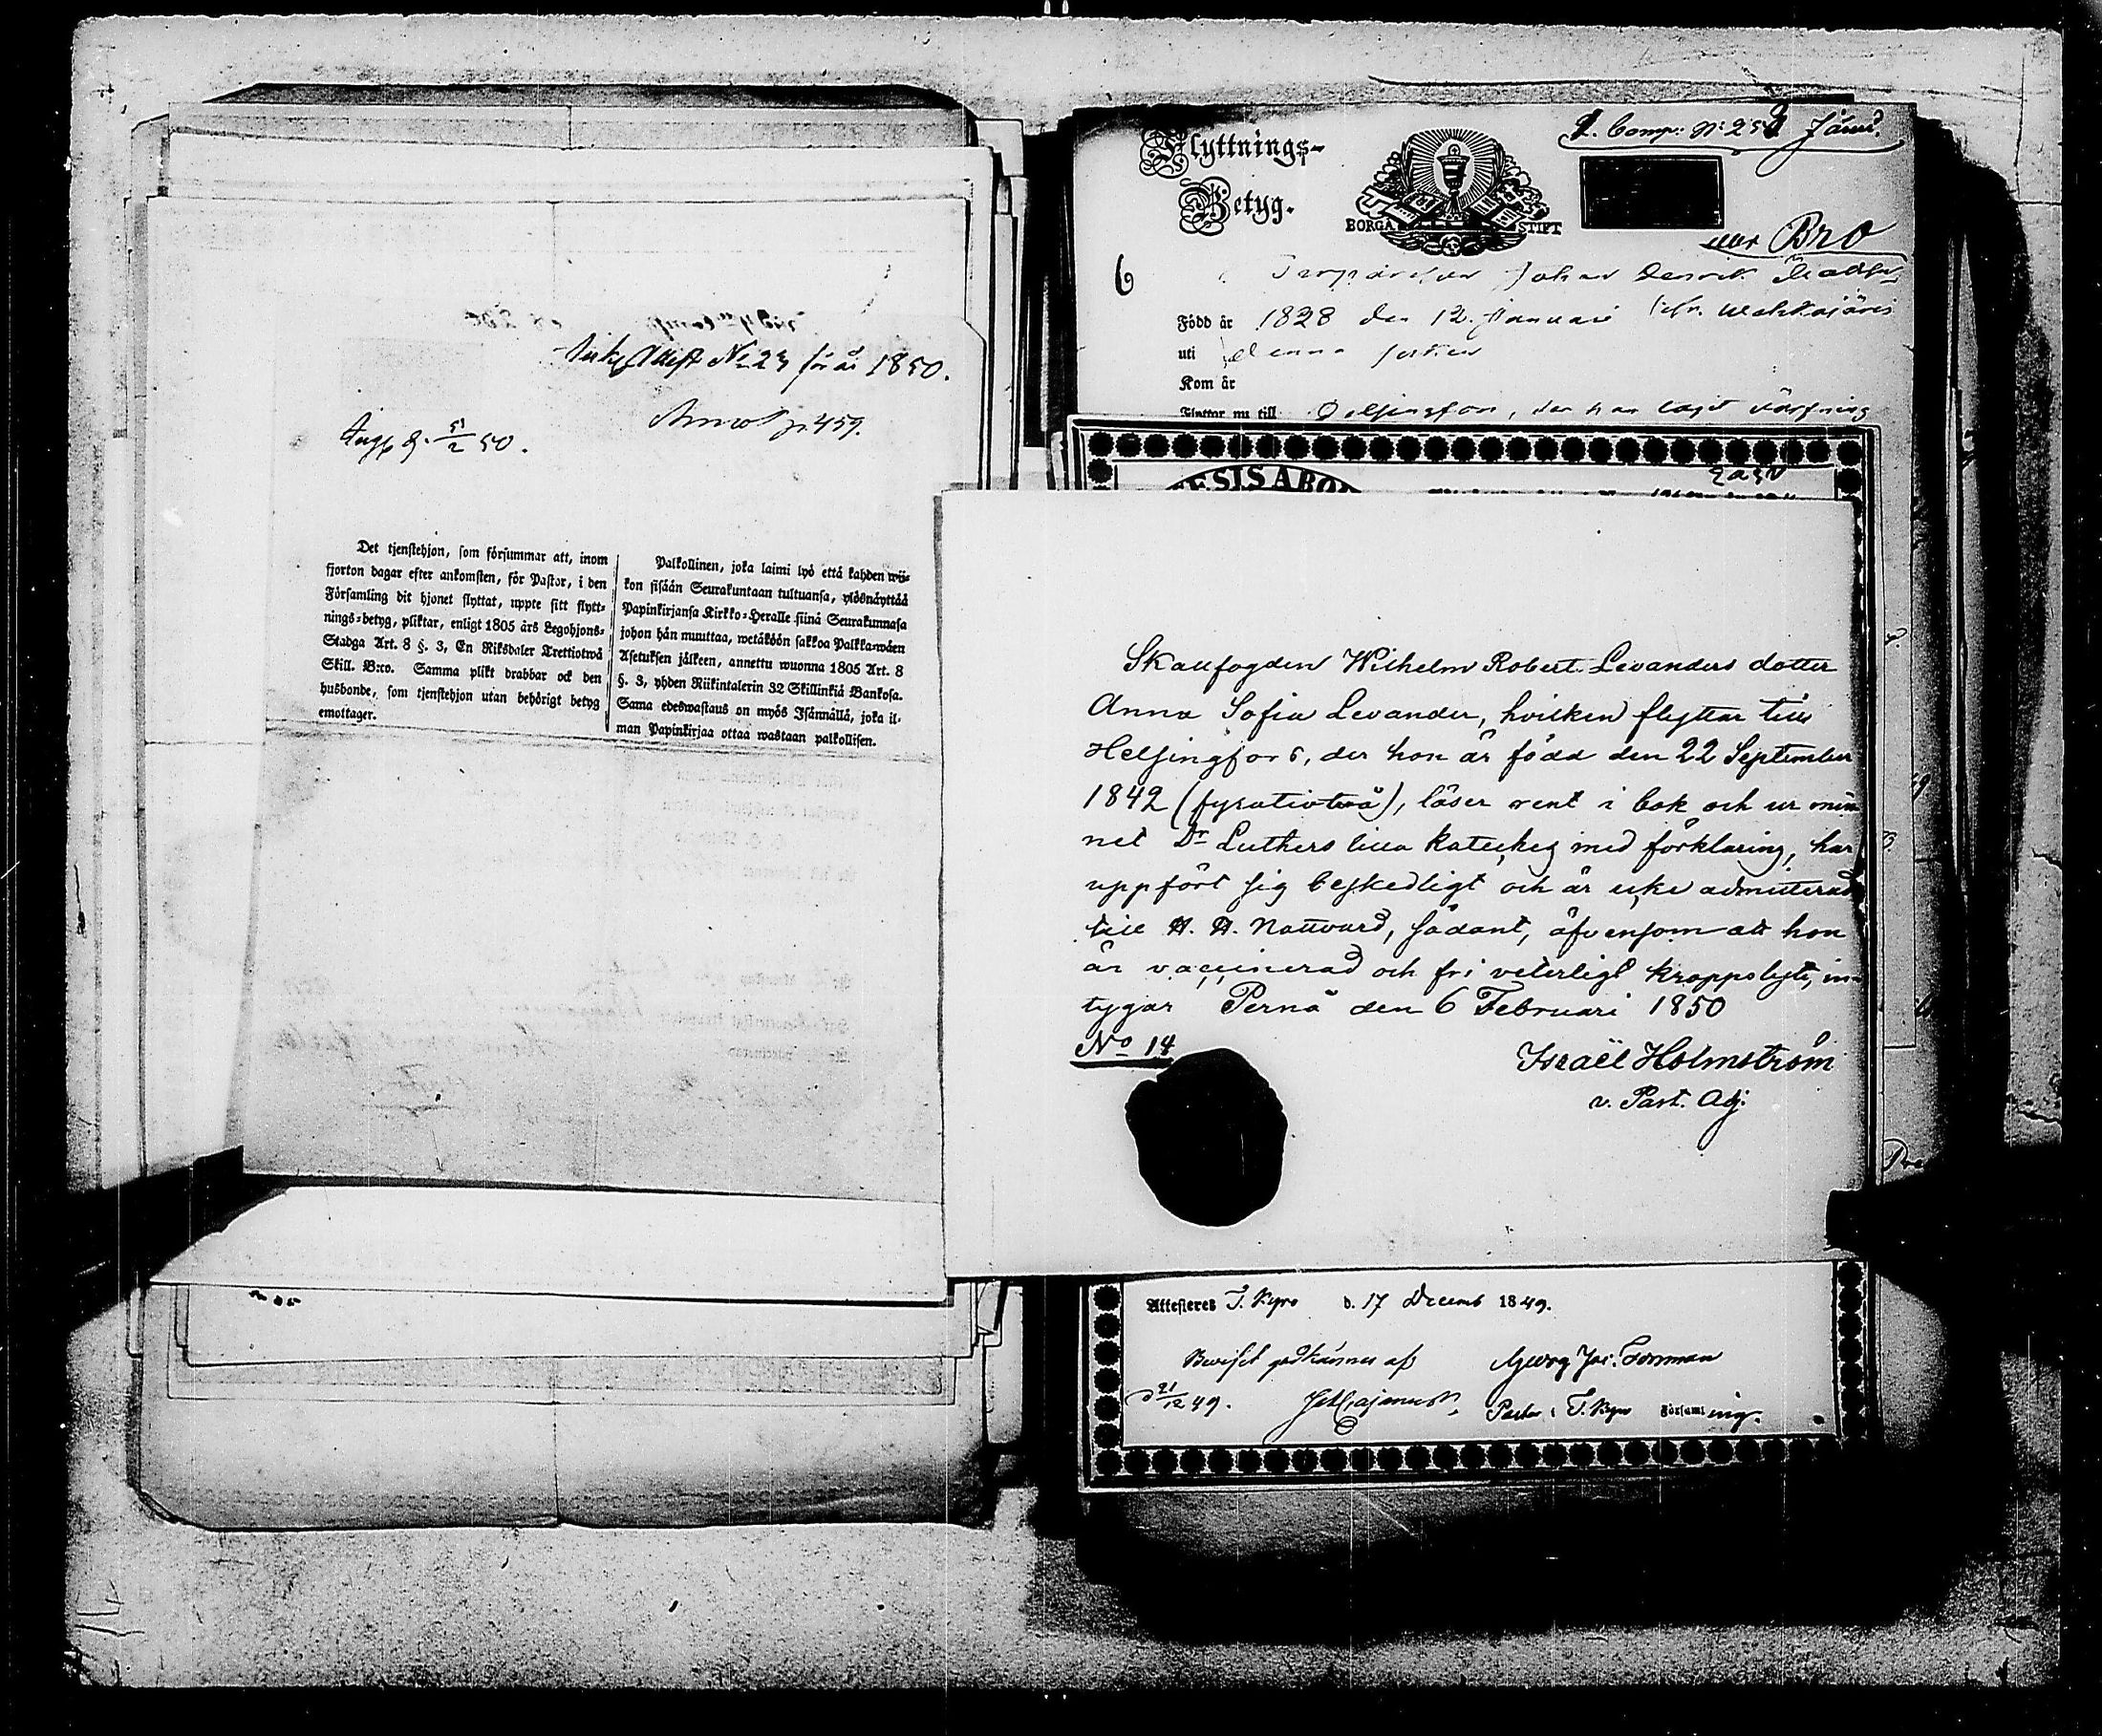 Attest No 23 för år 1850.
p. 459.
50.
Det tjenstehjon, som försummar att, inom
fjorton dagar efter ankomsten, för Pastor, i den
Församling dit hjonet flyttat, uppte sitt flytt-
nings-betyg, pliktar, enligt 1805 års Legohjons-
Stadga Art. 8 §. 3, En Riksdaler Trettiotwå
Skill. B:co. Samma plikt drabbar ock den
husbonde, som tjenstehjon utan behörigt betyg
emottager.
Palkollinen, joka laimi lyö että kahden wii-
kon sisään Seurakuntaan tultuansa, ylösnäyttää
Papinkirjansa Kirkko-Heralle siinä Seurakunnasa
johon hän muuttaa, wetäköön sakkoa Palkka-wäen
Asetuksen jälkeen, annettu wuonna 1805 Art. 8
§. 3, yhden Riikintalerin 32 Skillinkiä Bankosa.
Sama edeswastaus on myös Isännällä, joka il-
man Papinkirjaa ottaa wastaan palkollisen.
Flyttnings-
Betyg.
BORGÅ STIFT
Comp: No 25
Bro
6
Johan Henrik
Född år 1828 den 12. Januari
uti denna socken
Kom år
Flyttar nu till Helsingfors, der han tagit värfning
ESIS ABO
Skallfogden Wilhelm Robert Levanders dotter
Anna Sofia Levander, hvilken flyttar till
Helsingfors, der hon är född den 22 September
1842 (fyratiotvå), läser rent i bok och ur min
net Dr Luthers lilla kateches med förklaring, har
uppfört sig beskedligt och är icke admitterad
till H. H. Nattvard, sådant, äfvensom att hon
är vaccinerad och fri veterligt kroppslyte, in-
tygar Pernå den 6 Februari 1850
No 14
Israël Holmström
v. Past. Adj.
Attesteras T. Kyro d. 17 Decemb 1849.
Beviset godkännes af Georg Jac. Forsman
d 21/12 49. Cajanus
Pastor i T. Kyro Församling.